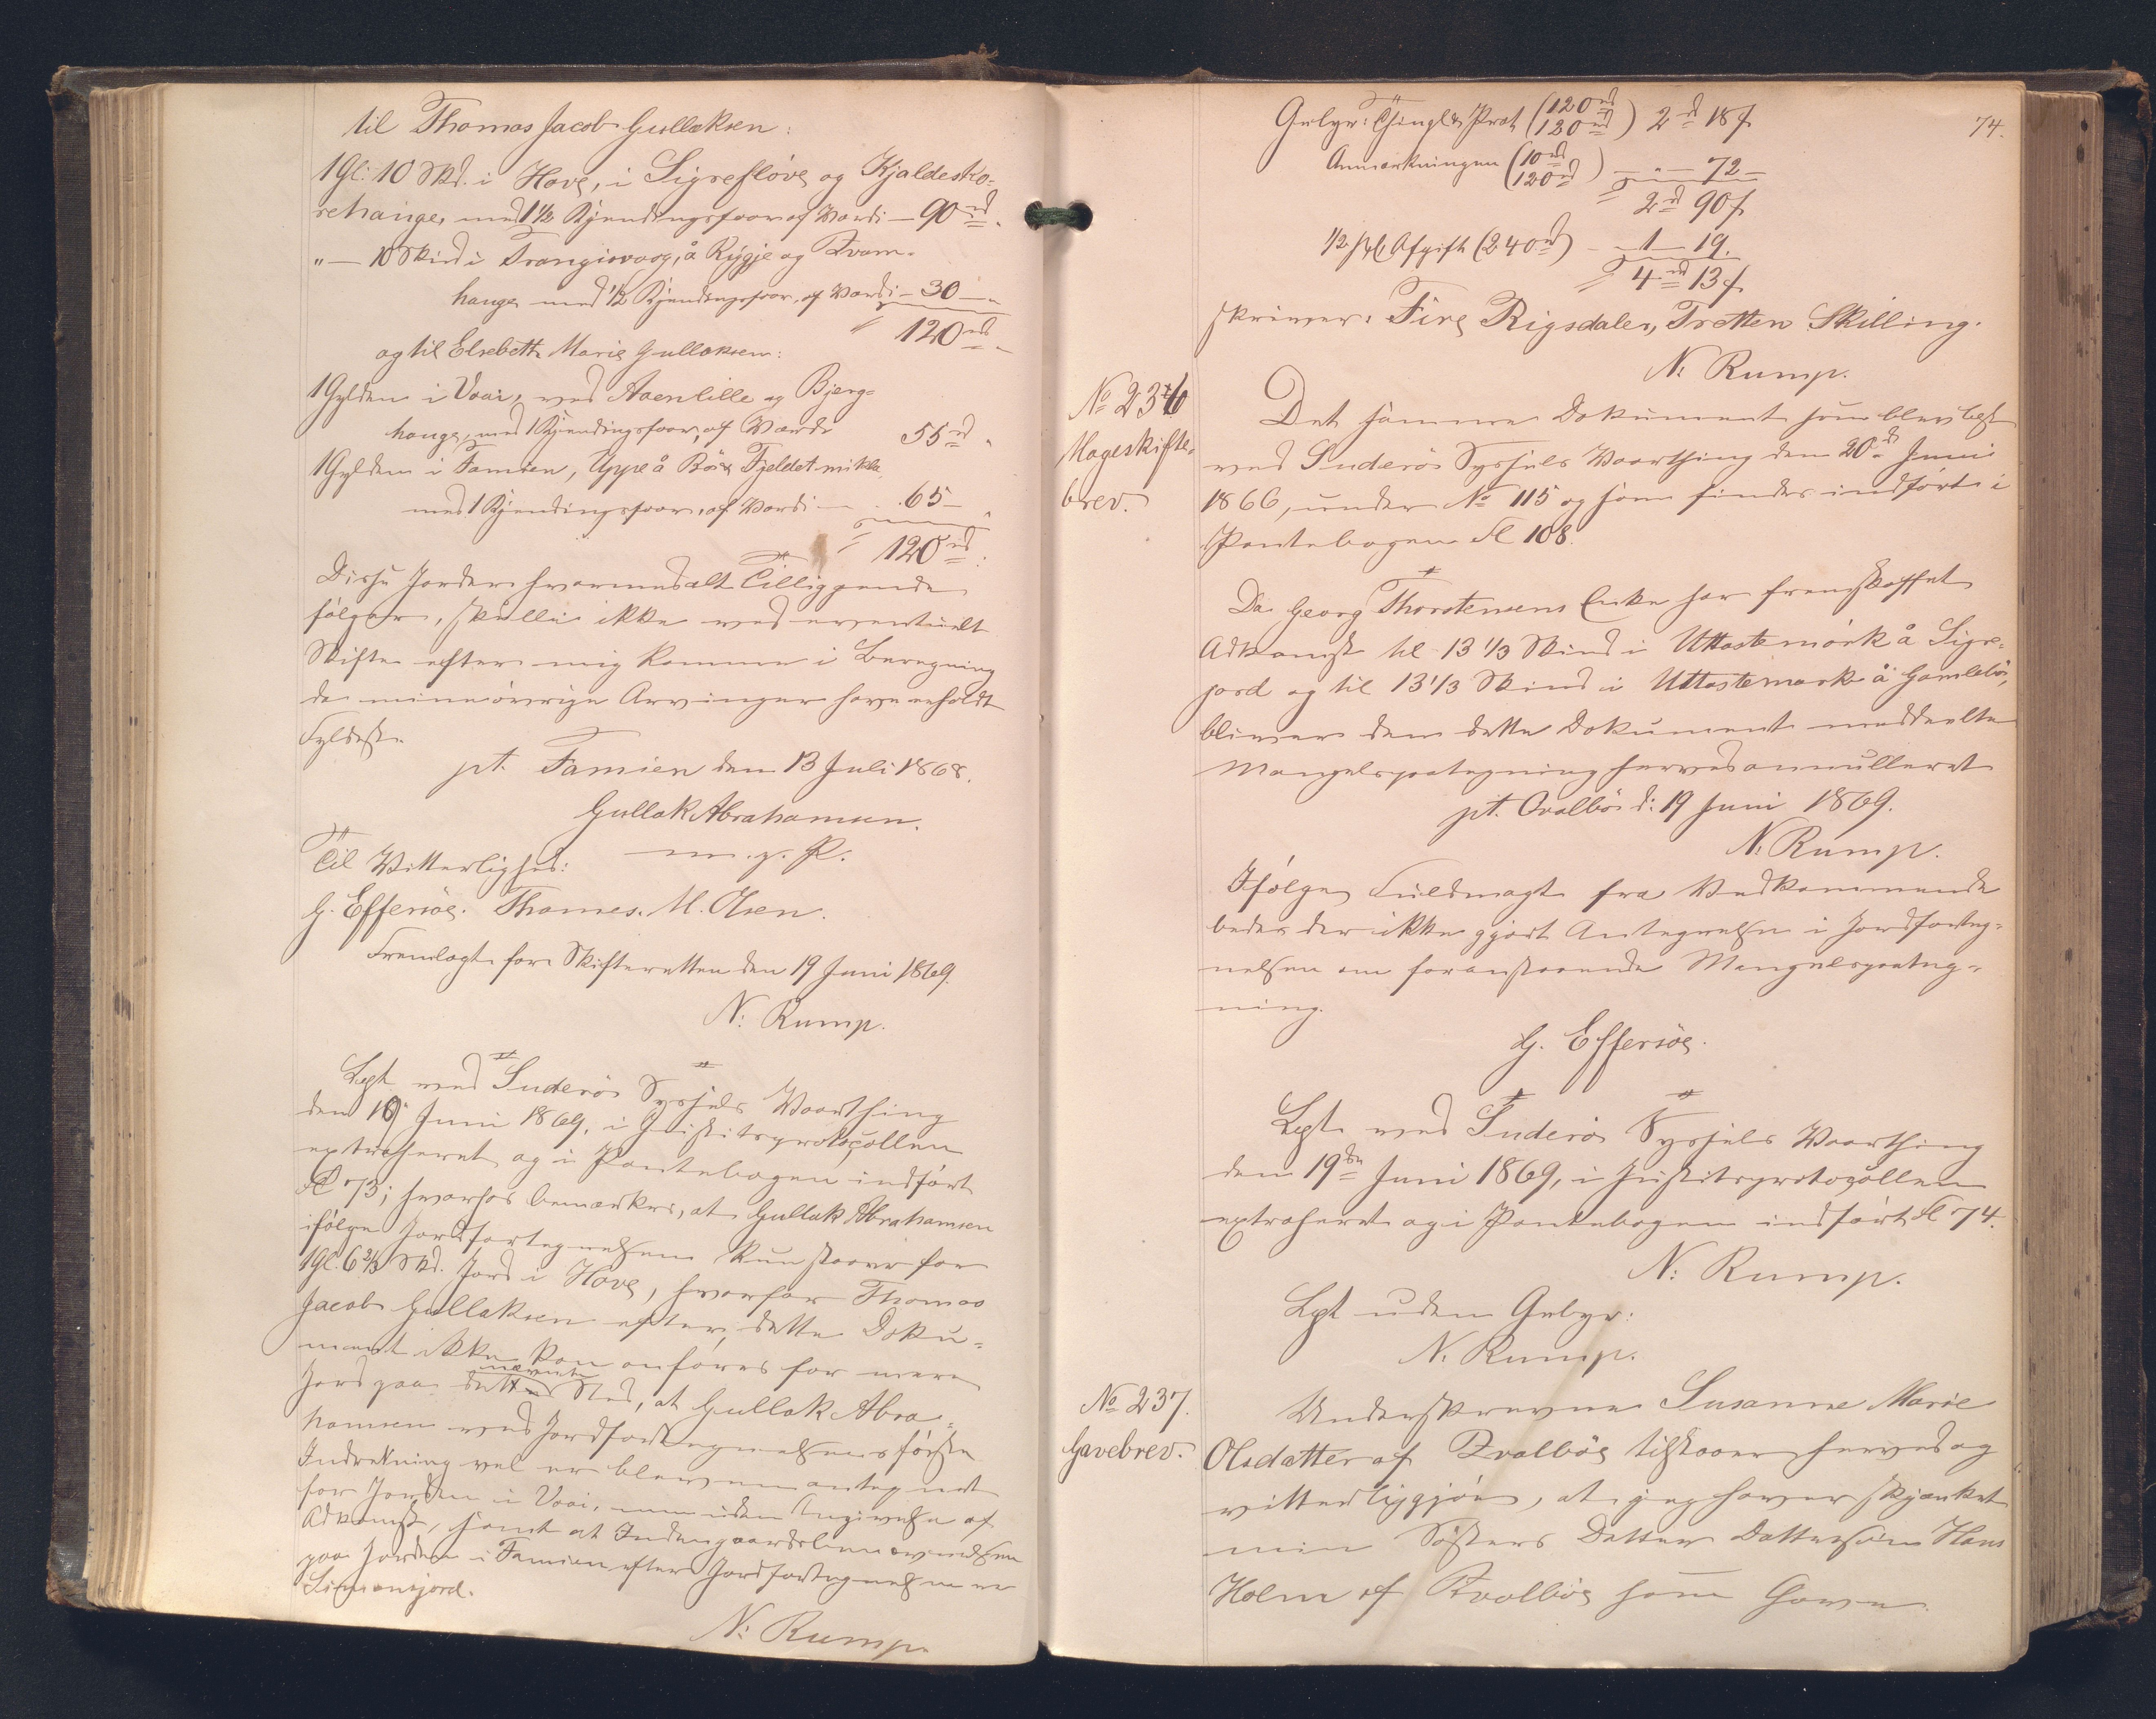 til Thomas Jacob Gullaksen:
1 Gl. 10 Skd. i Hove, i Sigrefløve og Kjaldesko-
rehauge, med 1½ Kjendingsfoor af Værdi — 90 rd
" — 10 Skind i Trangisvaag, å Ryggje og Kvam-
hauge med ½ Kjendingsfoor, af Værdi — 30 —
120 rd
og til Elsebeth Marie Gullaksen:
1 Gylden i Vaai, ved Aaenlille og Bjerg-
hauge, med 1 Kjendingsfoor, af Værdi 55 rd
1 Gylden i Famien, Uppe å Bø Fjeldet mikla
med 1 Kjendingsfoor, af Værdi — 65 —
120 rd
Disse Jorder hvormed alt Tilliggende
følger, skulle ikke ved eventuelt
Skifte efter mig komme i Beregning
da mine øvrige Arvinger have erholdt
Fyldest.
pt. Famien den 13 Juli 1868.
Gullak Abrahamsen.
m. p. P.
Til Vitterlighed:
G. Effersøe. Thomes. M. Olsen.
Fremlagt for Skifteretten den 19 Juni 1869.
N: Rump.
Læst ved Suderø Syssels Vaarthing
den 19 Juni 1869, i Justitsprotocollen
extraheret og i Pantebogen indført
Fol 73; hvorhos bemærkes, at Gullak Abrahamsen
ifølge Jordfortegnelsen kun staaer for
1 Gl. 6⅔ Skd. Jord i Hove, hvorfor Thomas
Jacob Gullaksen efter dette Doku-
ment ikke kan anføres for mere
Jord paa nævnte Sted, at Gullak Abra-
hamsen ved Jordfortegnelsens første
Indretning vel er bleven antegnet
for Jorden i Vaai, men uden Angivelse af
Adkomst, samt at
paa Jorden i Famien efter Jordfortegnelsen er
Simonsjord.
N: Rump.
74.
Gebyr: Thingl. & Prot (120 rd 120 rd) 2 rd 18 ſ
Anmærkningen (10 rd 120 rd) — " — 72 —
2 rd 90 ſ
½ pCt Afgift (240 rd) — 1 — 19.
4 rd 13 ſ
skriver: Fire Rigsdaler, Tretten Skilling.
N: Rump.
No 236
Mageskifte-
brev.
Det samme Dokument som blev læst
ved Suderø Syssels Vaarthing den 20de Juni
1866, under No 115 og som findes indført i
Pantebogen Fol 108.
Da Georg Thorstensens Enke har fremskaffet
Adkomst til 13⅓ Skind i Uttastemørk å Sigre-
jord og til 13⅓ Skind i Uttastemark å Gamlebø,
bliver den dette Dokument meddeelte
Mangelspaategning herved annulleret
pt. Qvalbø d: 19 Juni 1869.
N: Rump.
Ifølge Fuldmagt fra Vedkommende
bedes der ikke gjort Antegnelse i Jordforteg-
nelsen om foranstaaende Mangelspaateg-
ning.
G. Effersøe.
Læst ved Suderø Syssels Vaarthing
den 19de Juni 1869, i Justitsprotocollen
extraheret og i Pantebogen indført Fol 74.
N: Rump.
Læst uden Gebyr:
N. Rump.
No 237.
Gavebrev.
Underskrevne Susanne Marie
Olsdatter af Kvalbøe tilstaaer herved og
vitterliggjør, at jeg haver skjænket
min Søsters Datter Dattersøn Hans
Holm af Kvalbøe som Gave